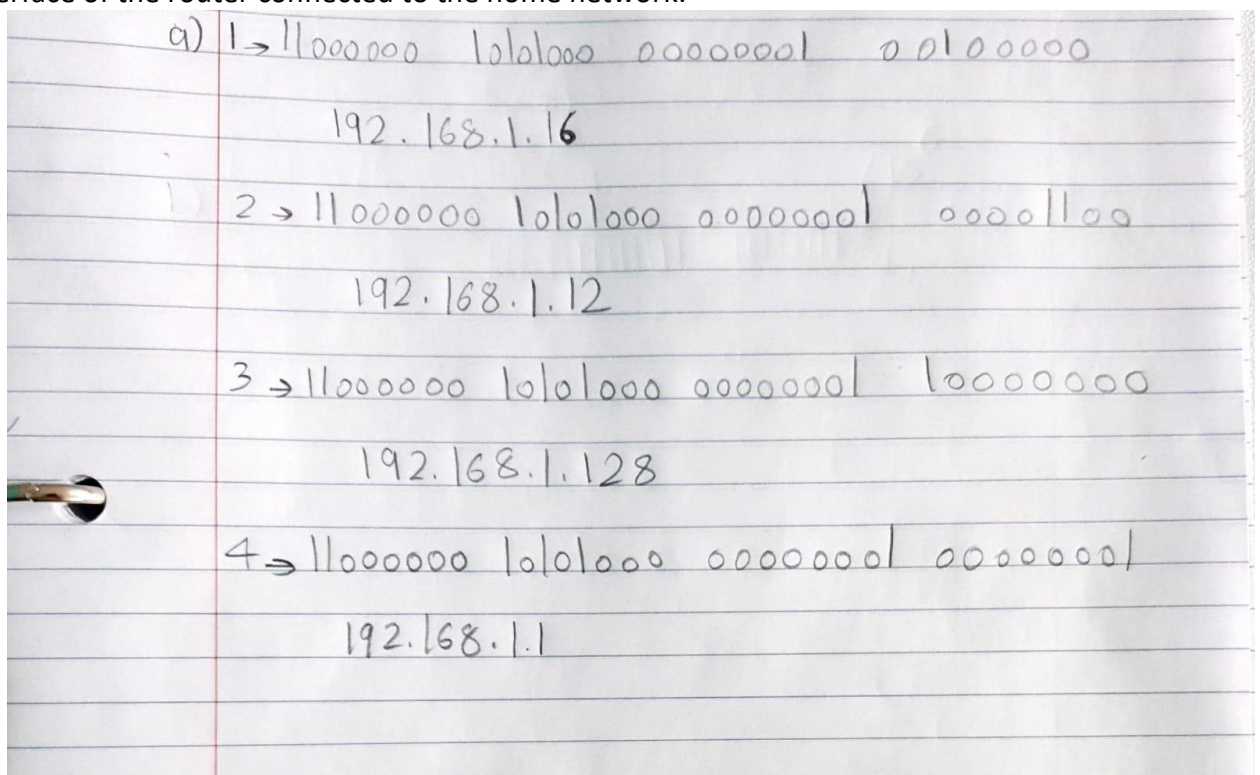 erface of the router connected to the home network.
a) 1→11000000 10101000 00000001 00100000
192.168.1.16
2→11000000 10101000 00000001 00001100
192.168.1.12
3→11000000 10101000 00000001 10000000
192.168.1.128
4→11000000 10101000 00000001 00000001
192.168.1.1